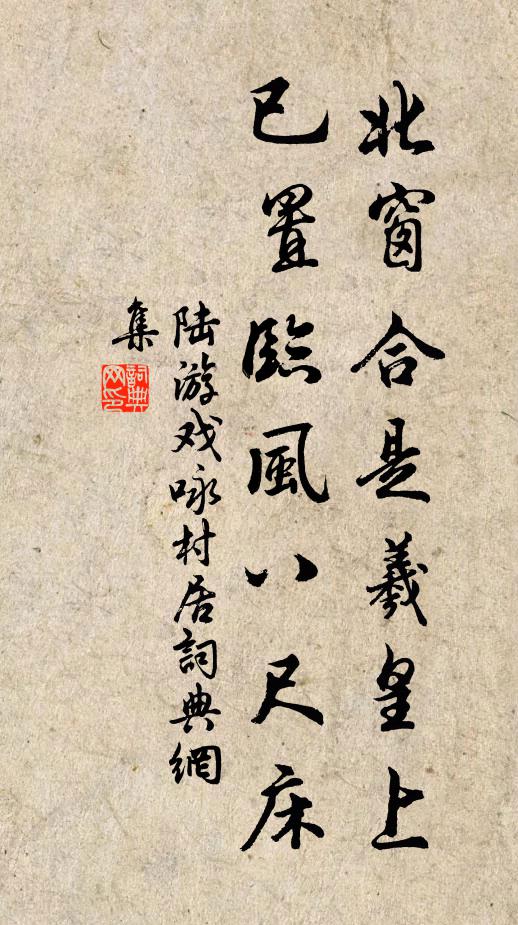 北窗合是羲皇上
已置臨風八尺床
陆游戏咏村居詞典網
集
詞典
网印